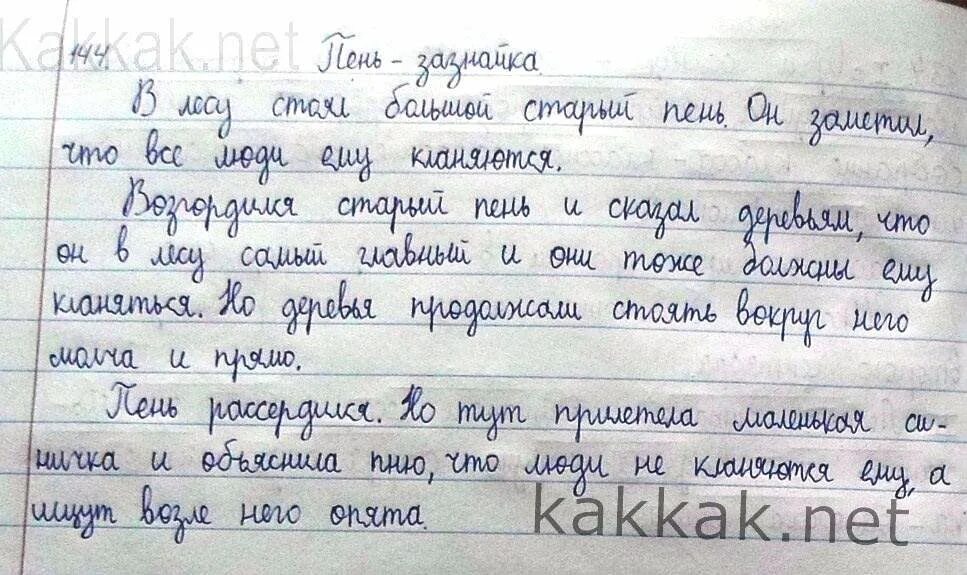 Kakkak.net
144. Пень - зазнайка.
В лесу стоял большой старый пень. Он заметил,
что все люди ему кланяются.
Возгордился старый пень и сказал деревьям, что
он в лесу самый главный и они тоже должны ему
кланяться. Но деревья продолжали стоять вокруг него
молча и прямо.
Пень рассердился. Но тут прилетела маленькая си-
ничка и объяснила пню, что люди не кланяются ему, а
ищут возле него опята.
kakkak.net